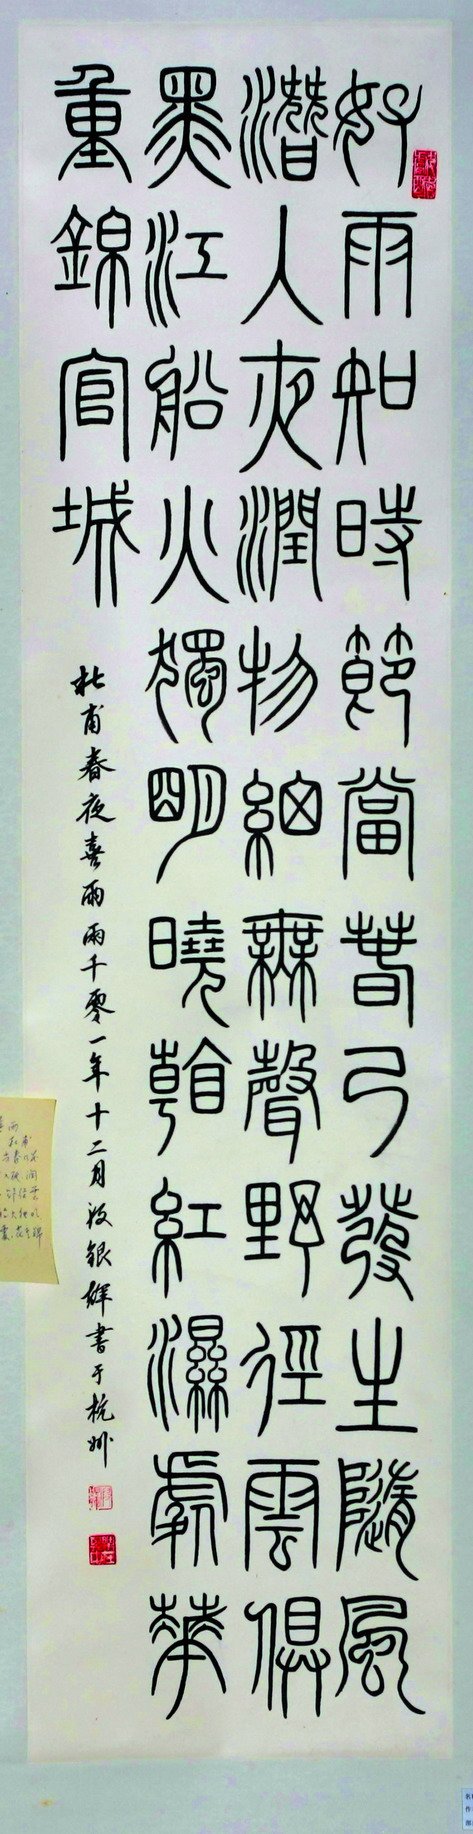 好雨知時節當春乃發生隨風
潛入夜潤物細無聲野徑雲俱
黑江船火獨明曉看紅濕處華
重錦官城
杜甫春夜喜雨兩千零一年十二月銀輝書于杭州
雨
杜甫